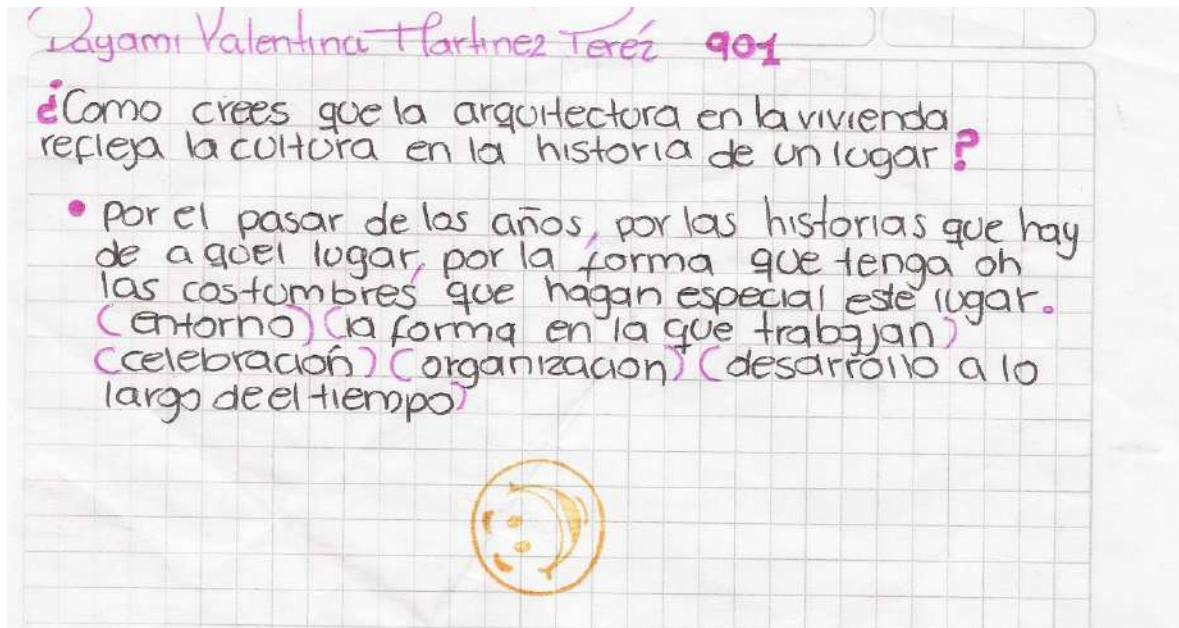 Dayami Valentina Martinez Pereź 901
¿Como crees que la arquitectura en la vivienda
refleja la cultura en la historia de un lugar?
• Por el pasar de los años, por las historias que hay
de a quel lugar, por la forma que tenga oh
las costumbres que hagan especial este lugar.
(entorno) (la forma en la que trabajan)
(celebración) (organizacion) (desarrollo a lo
largo de el tiempo)